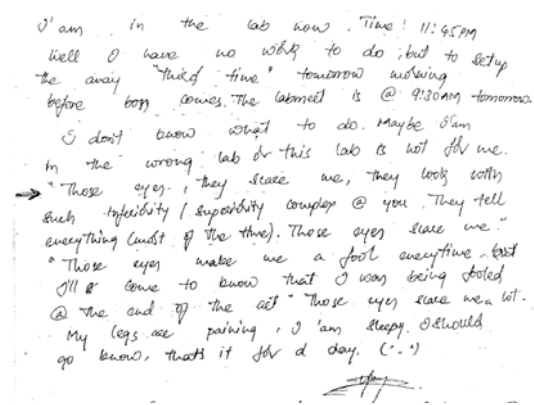 I'am in the lab now. Time: 11:45PM
Well I have no work to do, but to setup
the array "third time" tomorrow morning
before boss comes. The labmeet is @ 9:30AM tomorrow.
I don't know what to do. Maybe I'am
in the wrong lab or this lab is not for me.
"Those eyes, they scare me, they look with
such inferiority / superiority complex @ you. They tell
everything (most of the time). Those eyes scare me."
"Those eyes make me a fool everytime, but
I'll come to know that I was being fooled
@ the end of the act" Those eyes scare me a lot.
My legs are paining, I'am sleepy. I should
go know, that's it for d day. (·.·)